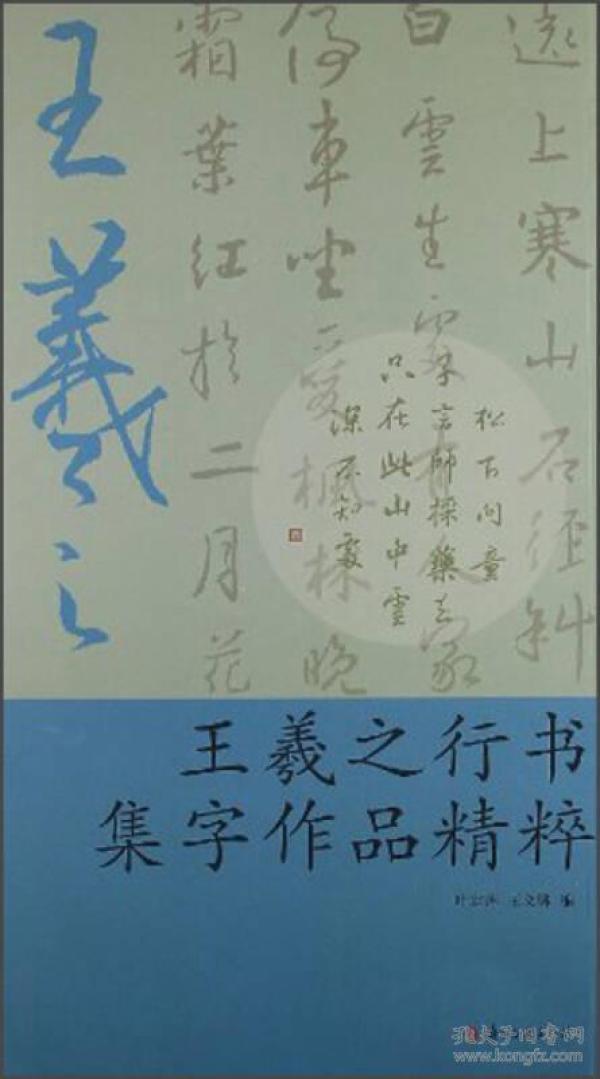 王羲之
遠上寒山石徑斜
白雲生處有人家
停車坐愛楓林晚
霜葉紅於二月花
松下問童
子言師採藥去
只在此山中雲
深不知處
王羲之行书
集字作品精粹
编
孔夫子旧书网
www.kongfz.com